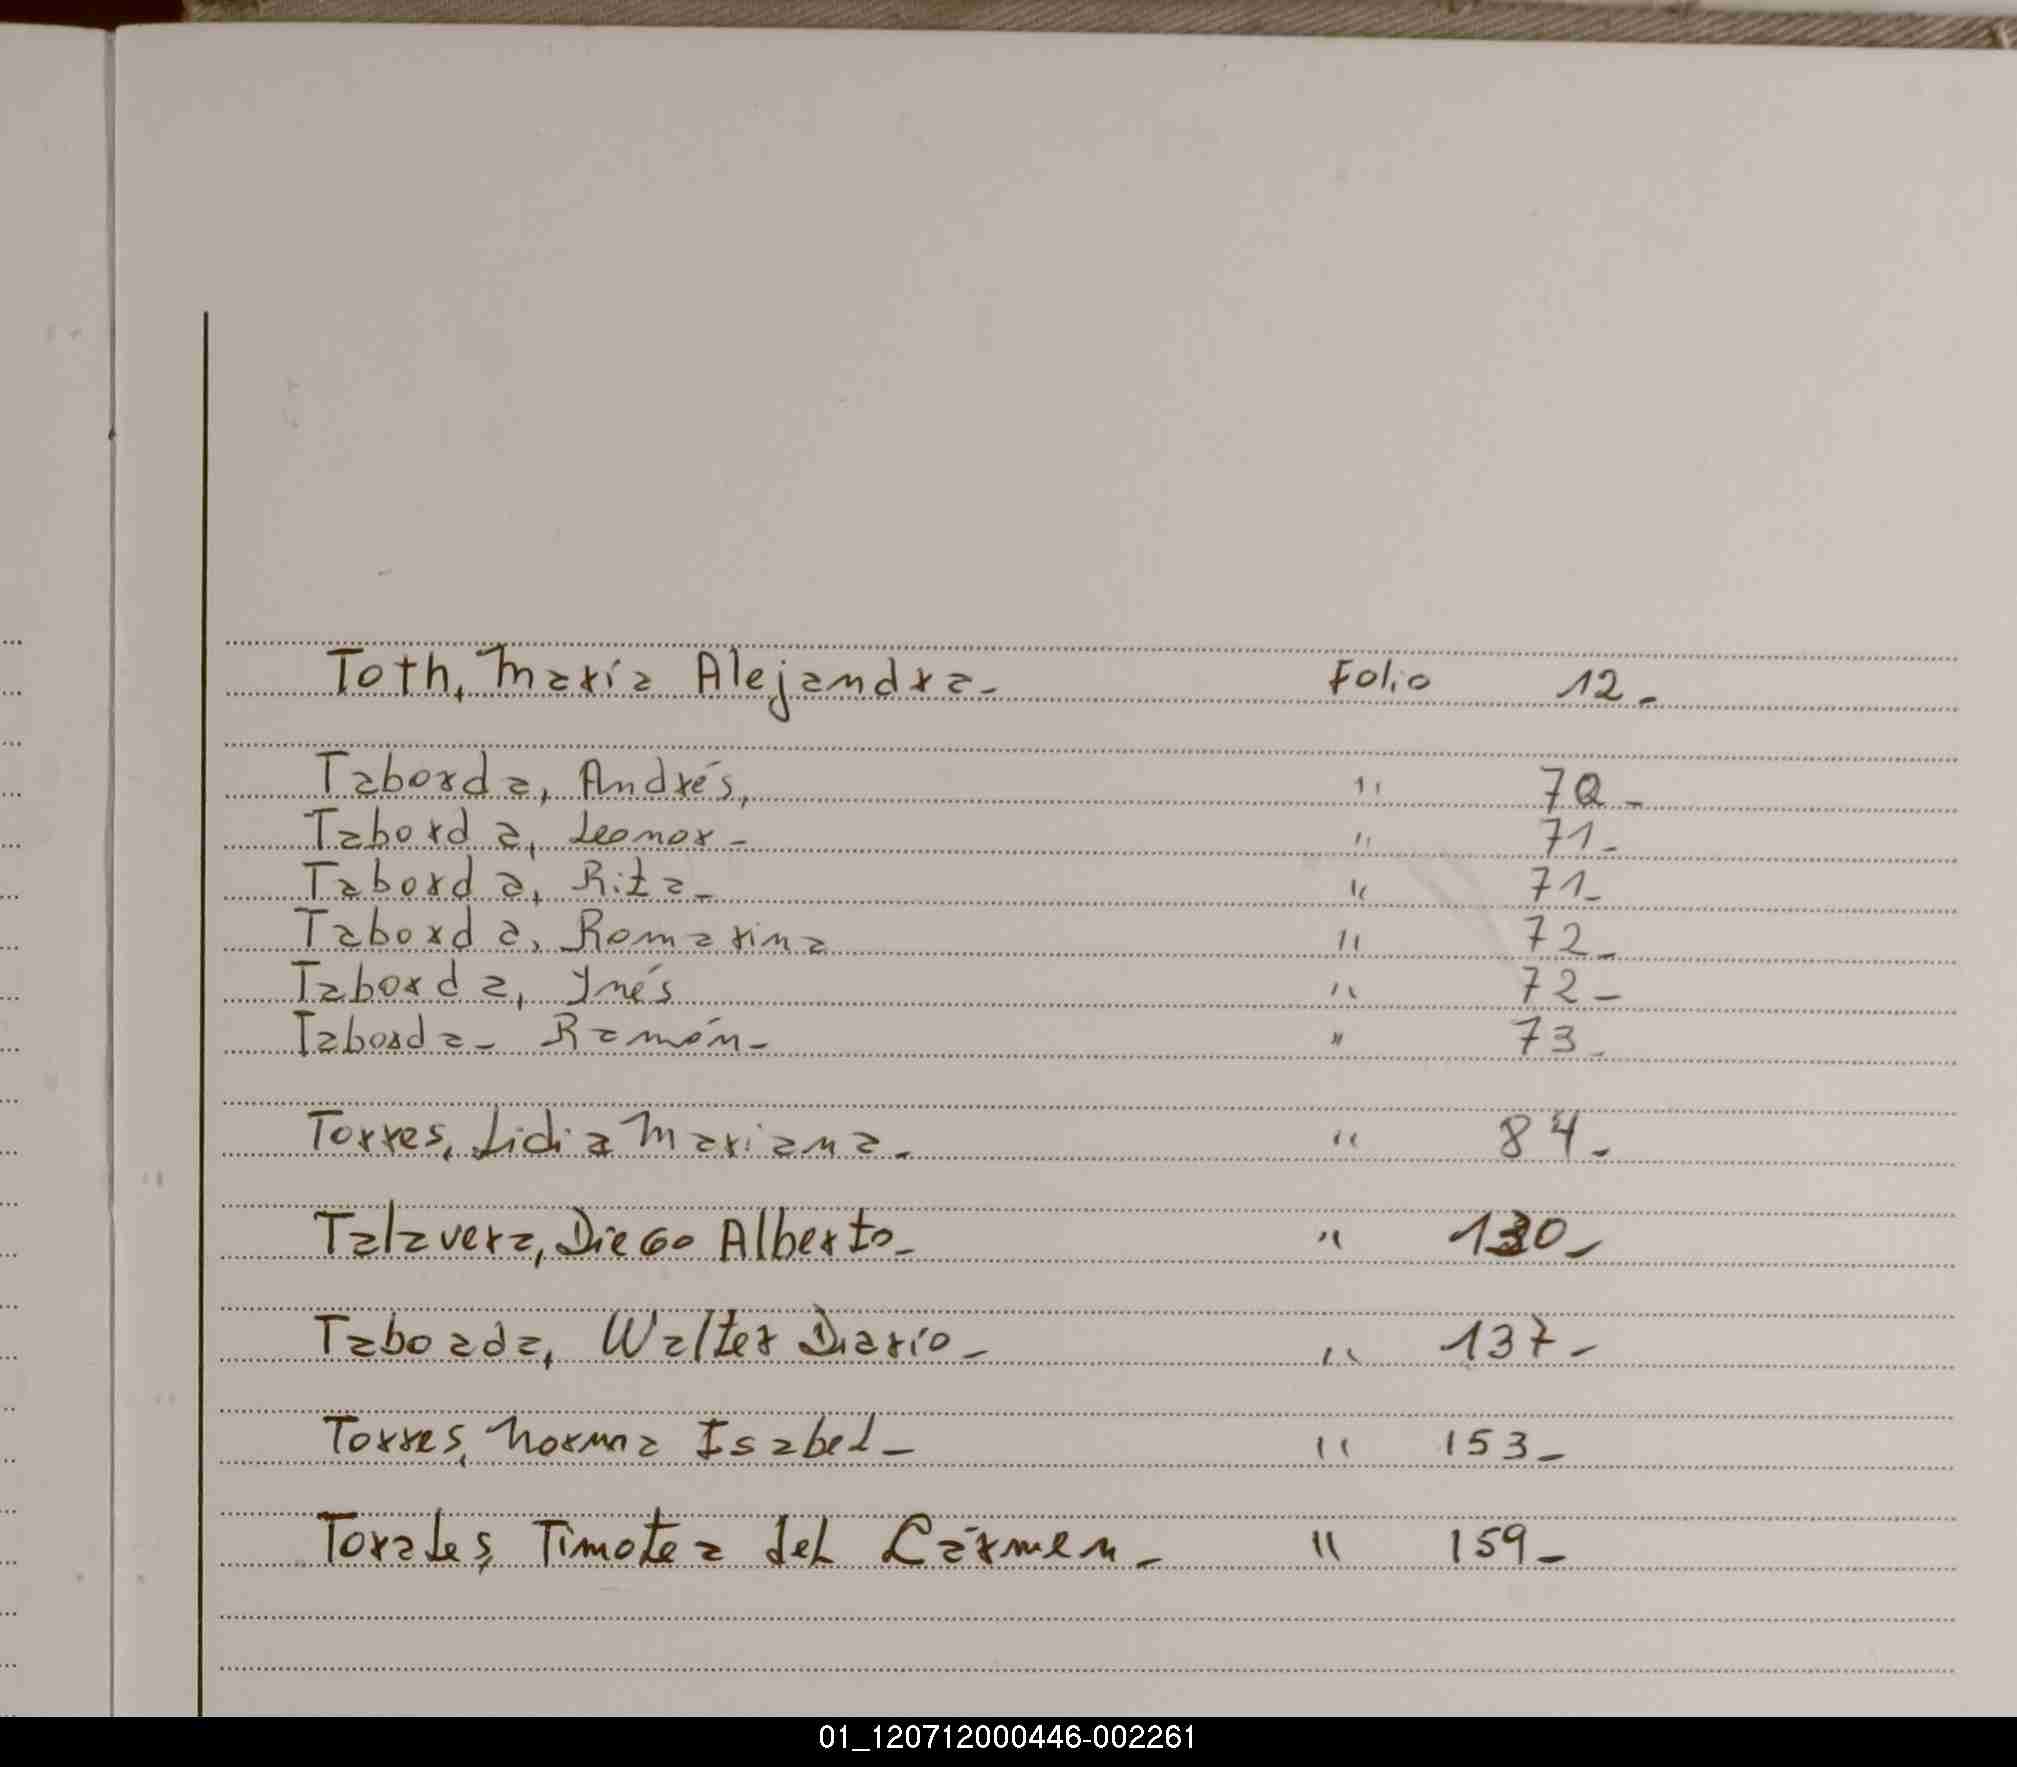 Toth, María Alejandra- Folio 12-
Taborda, Andrés, " 70-
Taborda, Leonor- " 71-
Taborda, Rita- " 71-
Taborda, Romarina " 72-
Taborda, Ynés " 72-
Taborda- Ramón- " 73-
Torres, Lidia Mariana- " 84-
Talavera, Diego Alberto- " 130-
Taboada, Walter Diario- " 137-
Torres, Norma Isabel- " 153-
Torales, Timotea del Cármen- " 159-
01_120712000446-002261